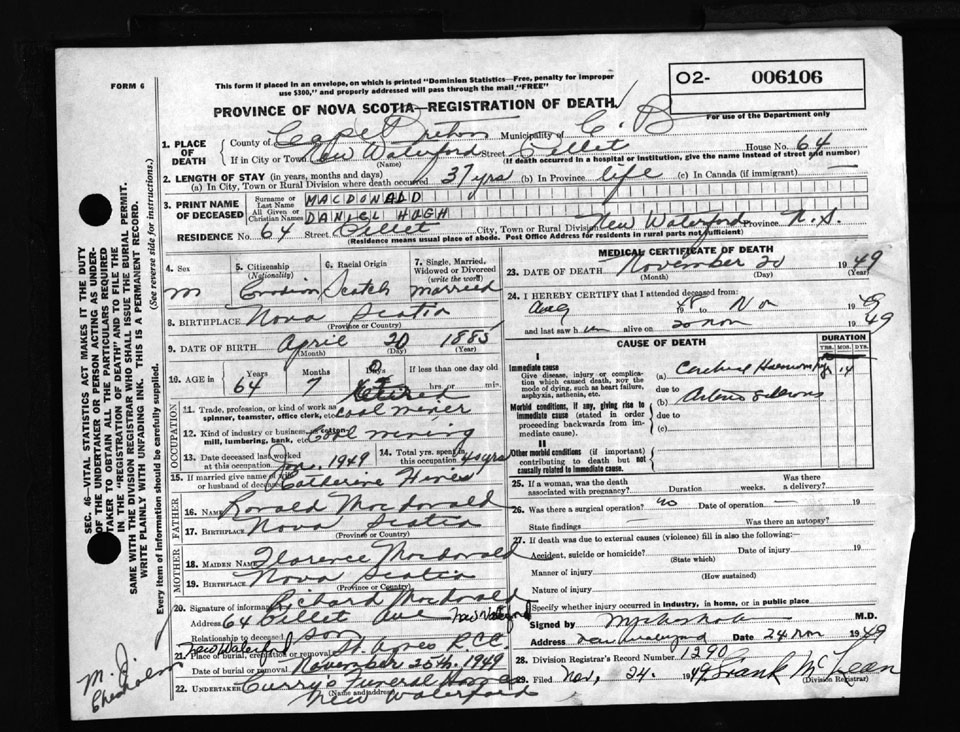 FORM 6
This form if placed in an envelope, on which is printed "Dominion Statistics—Free, penalty for improper
use $300," and properly addressed will pass through the mail "FREE"
O2- 006106
For use of the Department only
PROVINCE OF NOVA SCOTIA—REGISTRATION OF DEATH
1. PLACE OF DEATH
County of Cape Breton Municipality of C. B
If in City or Town New Waterford Street Ellet House No. 64
(Name) (If death occurred in a hospital or institution, give the name instead of street and number)
2. LENGTH OF STAY (in years, months and days)
(a) In City, Town or Rural Division where death occurred 37 yrs (b) In Province life (c) In Canada (if immigrant) —
3. PRINT NAME OF DECEASED
Surname or Last Name MACDONALD
All Given or Christian Names DANIEL HUGH
RESIDENCE No. 64 Street Ellet City, Town or Rural Division New Waterford Province N.S.
(Residence means usual place of abode. Post Office Address for residents in rural parts not sufficient)
4. Sex M
5. Citizenship (Nationality) Canadian
6. Racial Origin Scotch
7. Single, Married, Widowed or Divorced (write the word) married
8. BIRTHPLACE Nova Scotia
(Province or Country)
9. DATE OF BIRTH April 20 1885
(Month) (Day) (Year)
10. AGE in Years 64 Months 7 Days If less than one day old hrs. or min.
OCCUPATION
retired
11. Trade, profession, or kind of work as spinner, teamster, office clerk, etc. Coal miner
12. Kind of industry or business, as cotton mill, lumbering, bank, etc. Coal mining
13. Date deceased last worked at this occupation 1949 14. Total yrs. spent in this occupation 40 yrs
15. If married give name of wife or husband of deceased Catherine Hines
FATHER
16. NAME Ronald Macdonald
17. BIRTHPLACE Nova Scotia
(Province or Country)
MOTHER
18. MAIDEN NAME Florence Macdonald
19. BIRTHPLACE Nova Scotia
(Province or Country)
20. Signature of informant Richard Macdonald
Address 64 Ellet Ave New Waterford
Relationship to deceased son
21. Place of burial, cremation or removal New Waterford St. Agnes R.C.C.
Date of burial or removal November 25th. 1949
22. UNDERTAKER Curry's Funeral Homes
(Name and address)
New Waterford
MEDICAL CERTIFICATE OF DEATH
23. DATE OF DEATH November 20 1949
(Month) (Day) (Year)
24. I HEREBY CERTIFY that I attended deceased from:
Aug 48 Nov 1949
and last saw him alive on 20 Nov 1949
CAUSE OF DEATH
DURATION
YRS. MOS. DYS.
I
Immediate cause
Give disease, injury or complication which caused death, not the mode of dying, such as heart failure, asphyxia, asthenia, etc.
(a) Cerebral Haemorrhage 14
due to
Morbid conditions, if any, giving rise to immediate cause (stated in order proceeding backwards from immediate cause).
(b) Arterio sclerosis
due to
(c)
II
Other morbid conditions (if important) contributing to death but not causally related to immediate cause.
25. If a woman, was the death associated with pregnancy? Duration weeks. Was there a delivery?
26. Was there a surgical operation? no Date of operation — 19
State findings Was there an autopsy?
27. If death was due to external causes (violence) fill in also the following:—
Accident, suicide or homicide? Date of injury 19
(State which)
Manner of injury
(How sustained)
Nature of injury
Specify whether injury occurred in Industry, in home, or in public place
Signed by M.D.
Address New Waterford Date 24 Nov 1949
28. Division Registrar's Record Number 1290
29. Filed Nov, 24. 1949 Frank McLean
(Division Registrar)
SEC. 46—VITAL STATISTICS ACT MAKES IT THE DUTY
OF THE UNDERTAKER OR PERSON ACTING AS UNDER-
TAKER TO OBTAIN ALL THE PARTICULARS REQUIRED
IN THE "REGISTRATION OF DEATH" AND TO FILE THE
SAME WITH THE DIVISION REGISTRAR WHO SHALL ISSUE THE BURIAL PERMIT.
WRITE PLAINLY WITH UNFADING INK. THIS IS A PERMANENT RECORD.
Every item of information should be carefully supplied. (See reverse side for instructions.)
M.